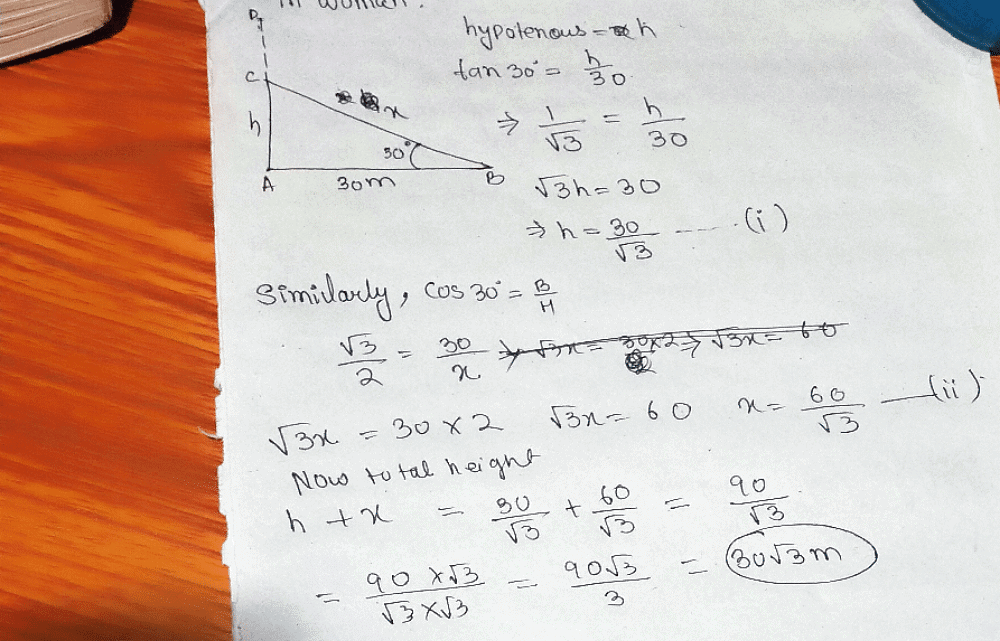 in woman.
D
C
h
x
30°
A
30m
B
hypotenous = h
tan 30° = h/30
⇒ 1/√3 = h/30
√3h = 30
⇒ h = 30/√3 ---- (i)
Similarly, cos 30° = B/H
√3/2 = 30/x ⇒ √3x = 30×2 ⇒ √3x = 60
√3x = 30 × 2 √3x = 60 x = 60/√3 —(ii)
Now total height
h + x = 30/√3 + 60/√3 = 90/√3
= 90 × √3/√3 × √3 = 90√3/3 = 30√3 m